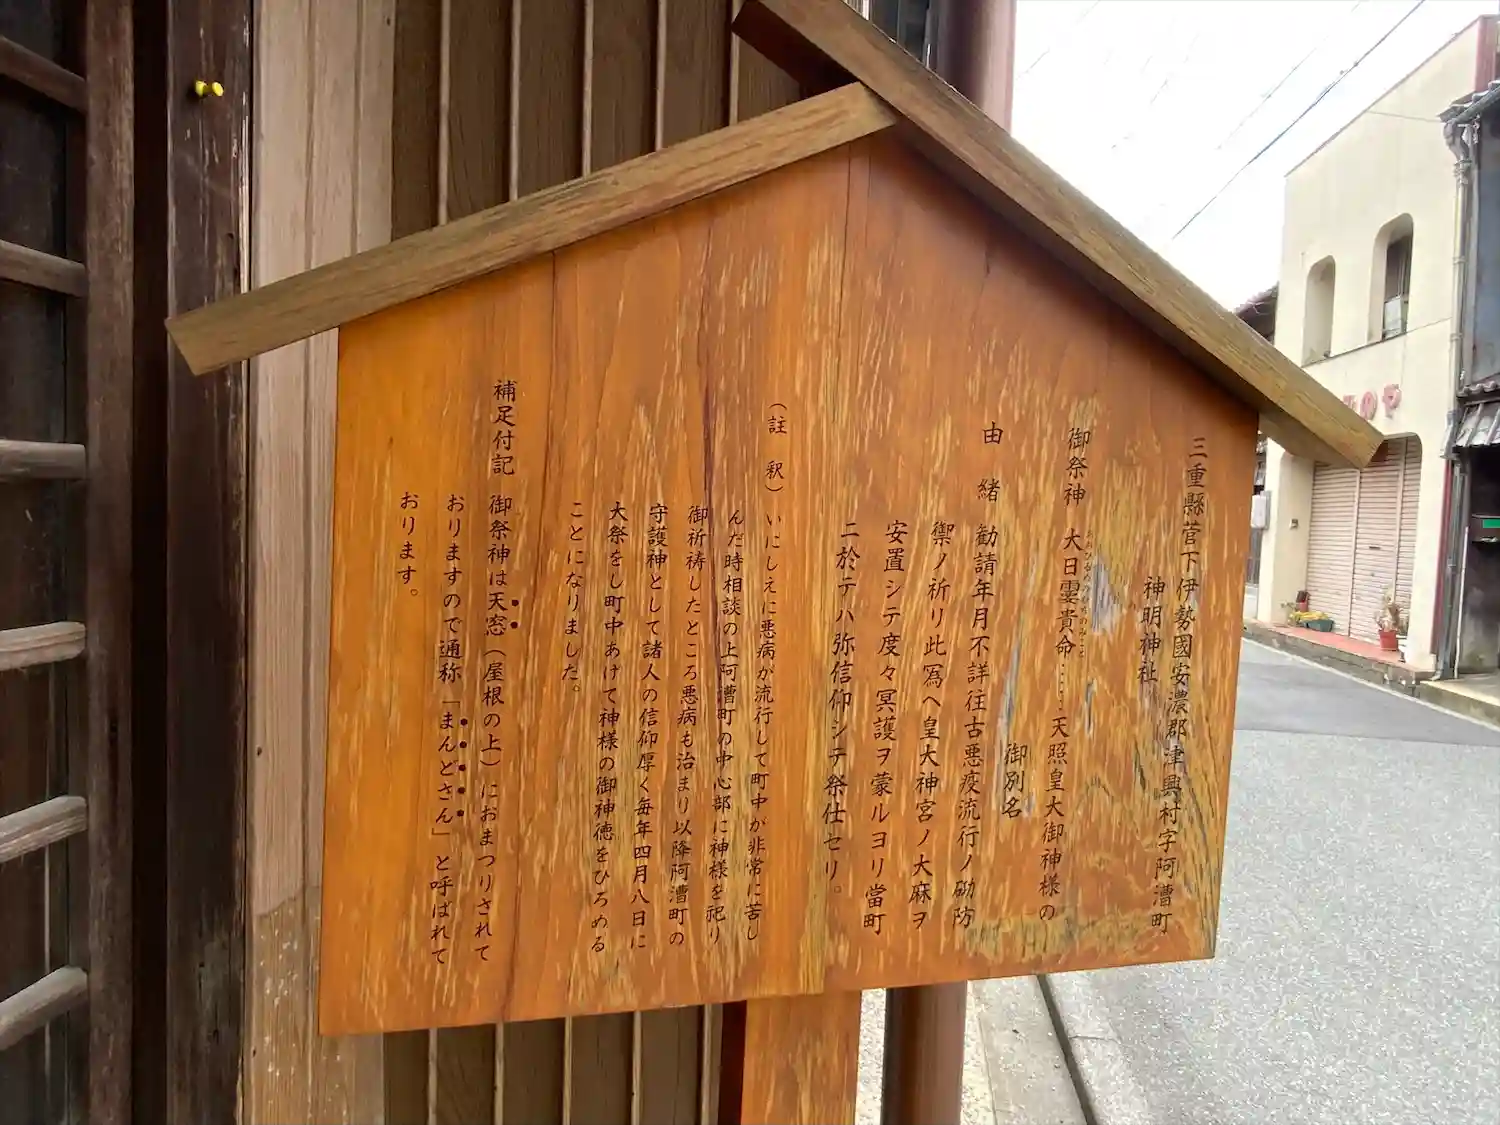 三重縣菅下伊勢國安濃郡津興村字阿漕町
神明神社
御祭神 大日孁貴命……天照皇大御神様の
おおひるめのむちのみこと
御別名
由緒 勧請年月不詳往古悪疫流行ノ砌防
禦ノ祈リ此冩ヘ皇大神宮ノ大麻ヲ
安置シテ度々冥護ヲ蒙ルヨリ當町
ニ於テハ弥信仰シテ祭仕セリ。
(註釈) いにしえに悪病が流行して町中が非常に苦し
んだ時相談の上阿漕町の中心部に神様を祀り
御祈祷したところ悪病も治まり以降阿漕町の
守護神として諸人の信仰厚く毎年四月八日に
大祭をし町中あげて神様の御神徳をひろめる
ことになりました。
補足付記 御祭神は天窓(屋根の上)におまつりされて
おりますので通称「まんどさん」と呼ばれて
おります。